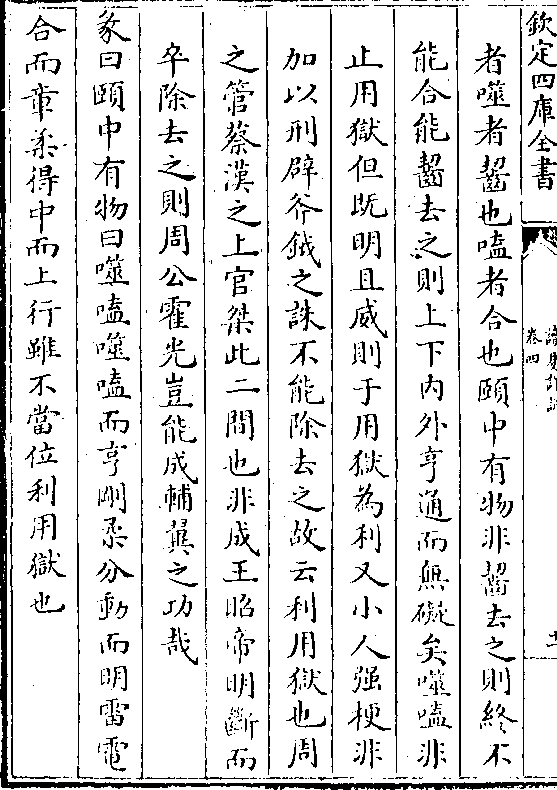 欽定四庫全書
卷四
十一
者噬者齧也嗑者合也頤中有物非齧去之則終不
能合能齧去之則上下内外亨通而無礙矣噬嗑非
止用獄但既明且威則于用獄為利又小人强梗非
加以刑辟斧鉞之誅不能除去之故云利用獄也周
之管蔡漢之上官桀此二間也非成王昭帝明斷而
卒除去之則周公霍光豈能成輔翼之功哉
彖曰頤中有物曰噬嗑噬嗑而亨剛柔分動而明雷電
合而章柔得中而上行雖不當位利用獄也